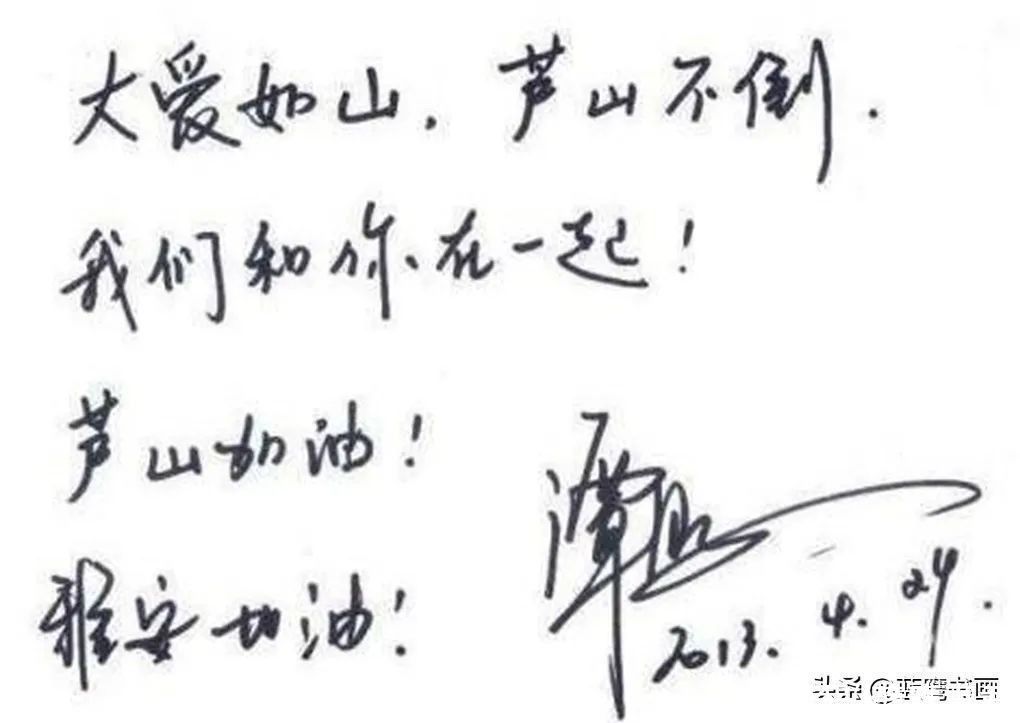 大爱如山，芦山不倒.
我们和你在一起！
芦山加油！
雅安加油！
2013.4.24.
头条 @蓝鹰书画